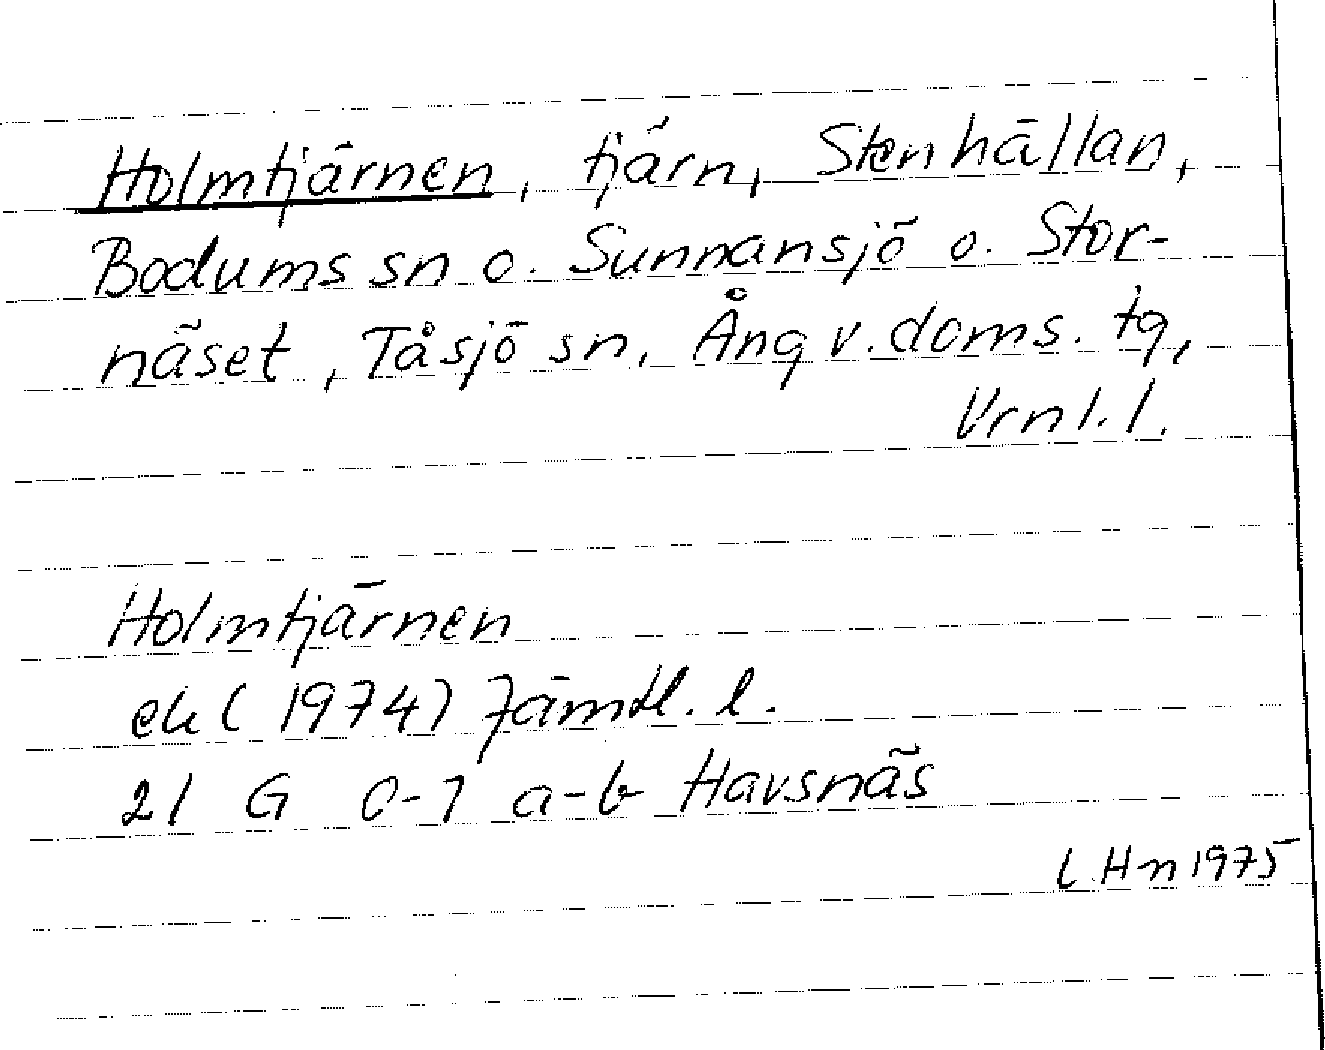 Holmtjärnen, tjärn, Stenhällan,
Bodums sn o. Sunnansjö o. Stor-
näset, Tåsjö sn, Ång v. doms. tg,
Vrnl. l.
Holmtjärnen
ek (1974) Jämtl. l.
21 G 0-1 a-b Havsnäs
LHn 1975